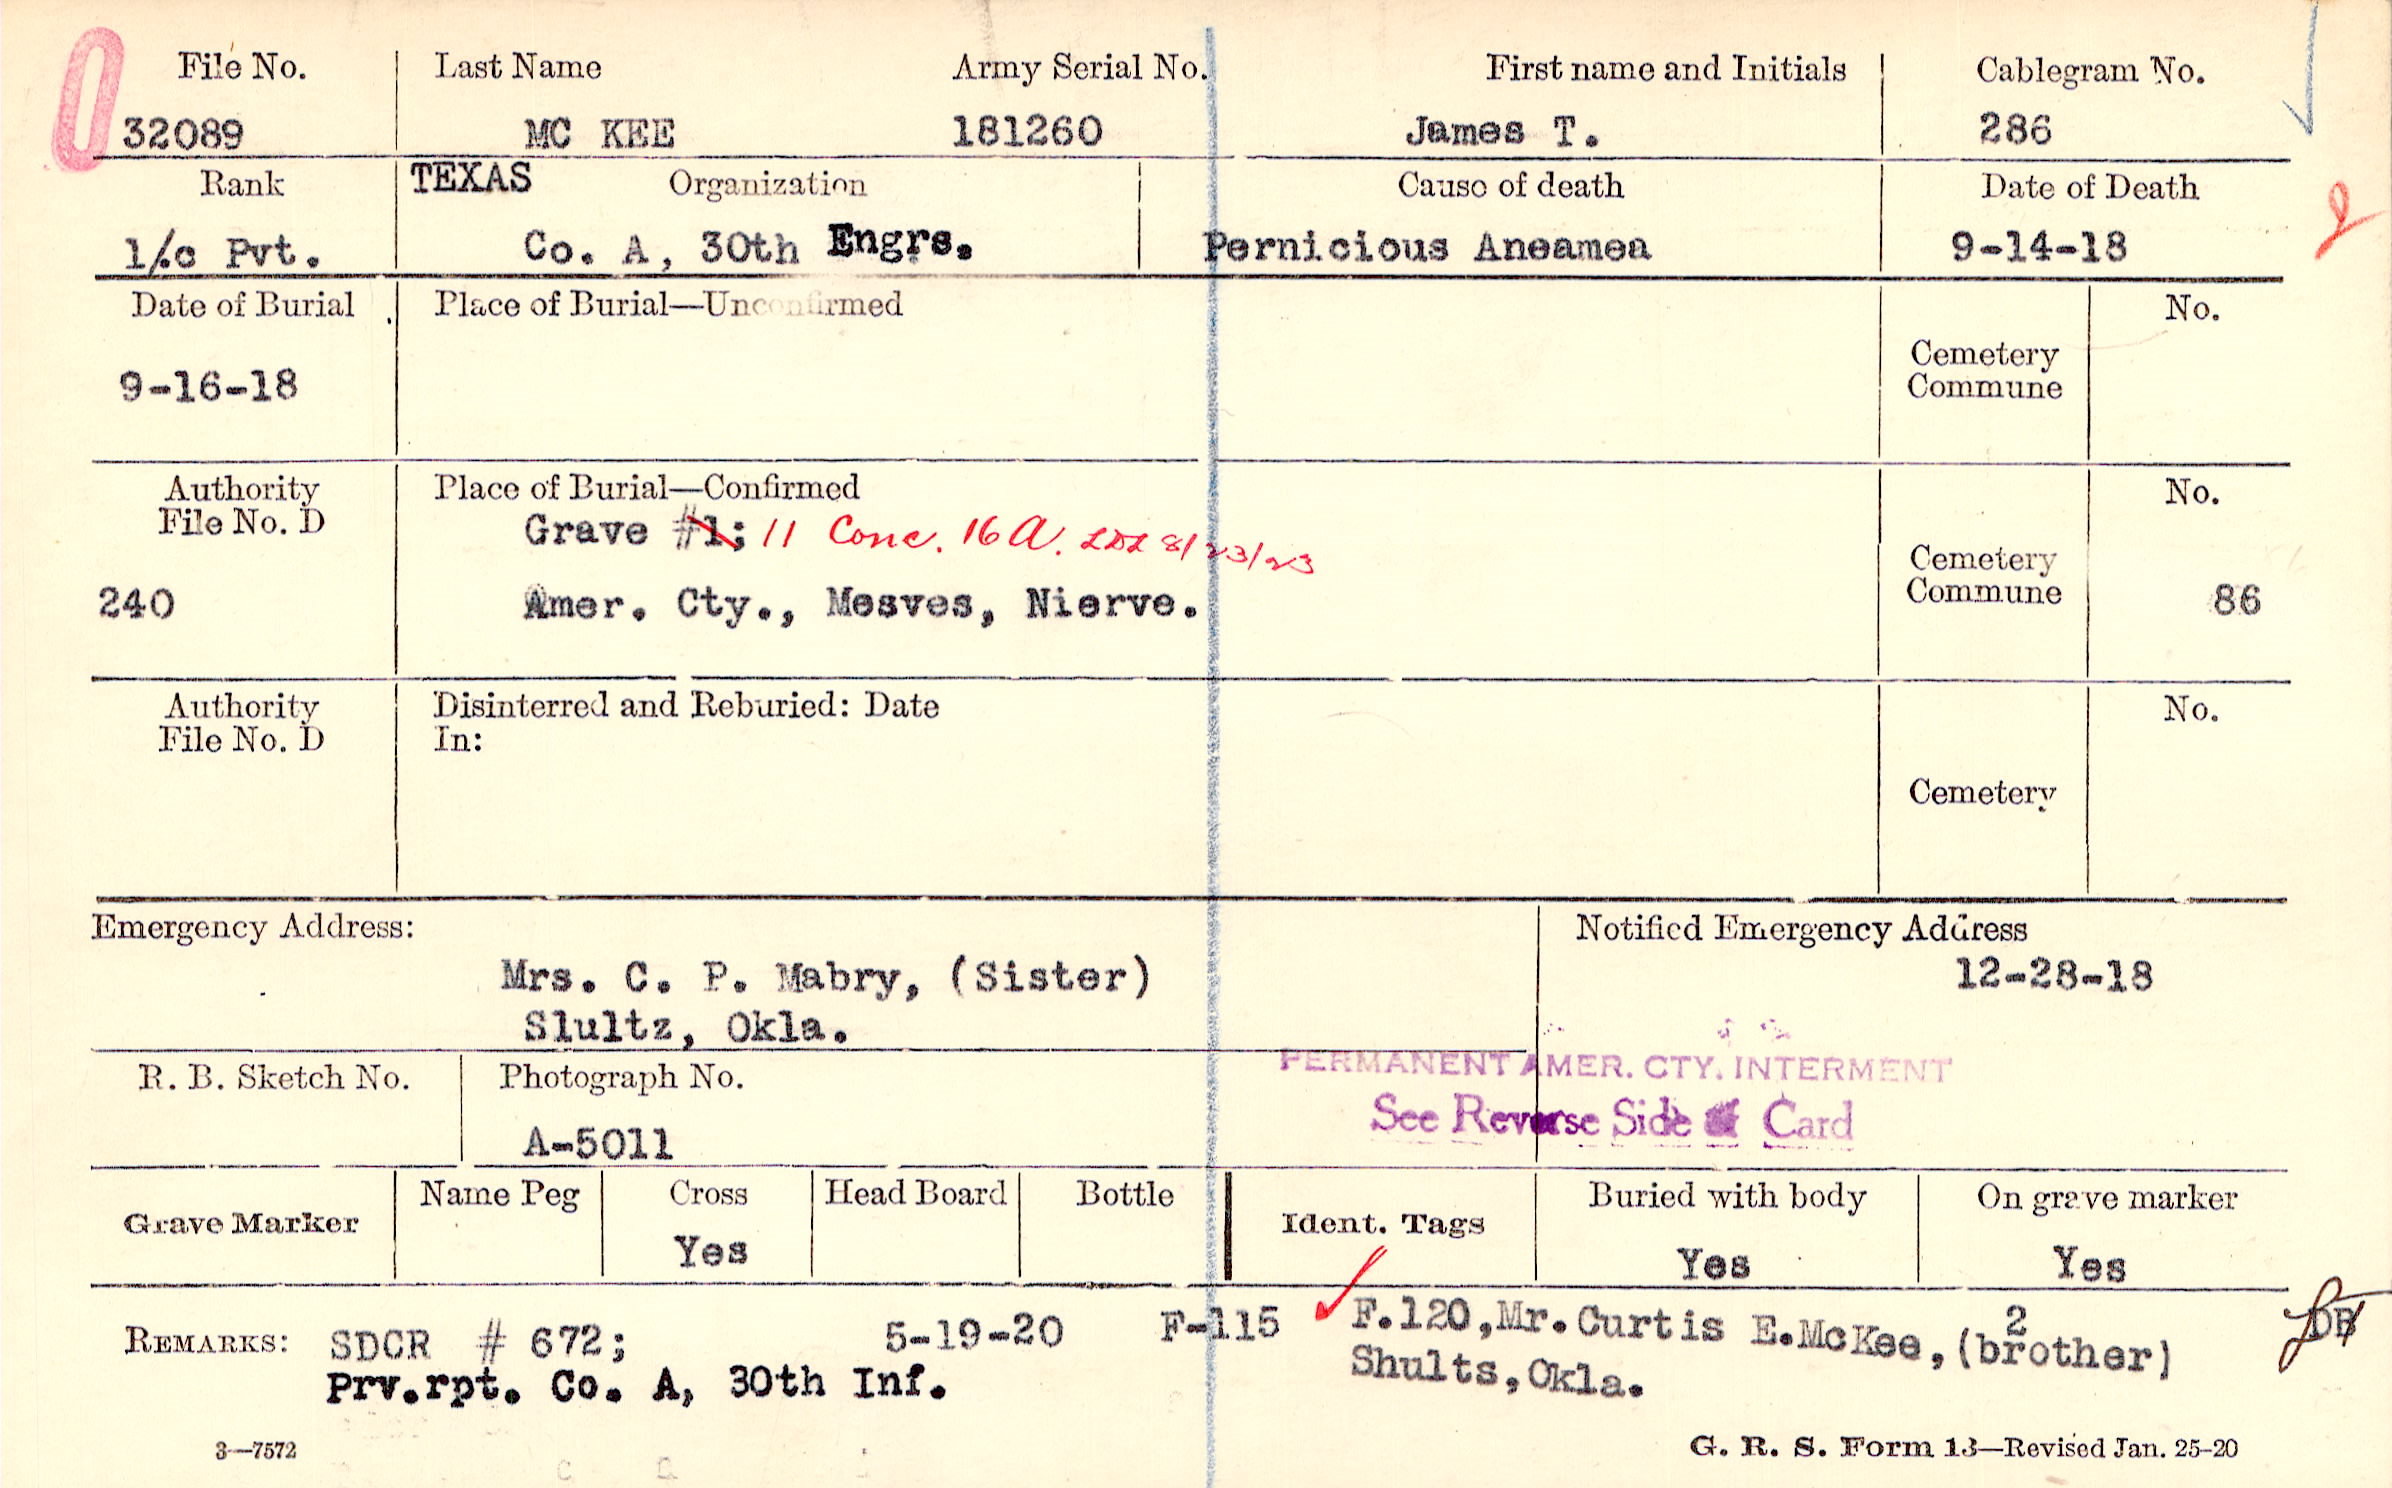 File No. Last Name Army Serial No. First name and Initials Cablegram No.
32089 MC KEE 181260 James T. 286
Rank TEXAS Organization Cause of death Date of Death
1/c Pvt. Co. A, 30th Engrs. Pernicious Aneamea 9-14-18
Date of Burial Place of Burial—Unconfirmed No.
9-16-18 Cemetery
Commune
Authority Place of Burial—Confirmed No.
File No. D Grave #1; 11 Conc. 16 A. LDL 8/23/23
Cemetery
240 Amer. Cty., Mesves, Nierve. Commune 86
Authority Disinterred and Reburied: Date No.
File No. D In:
Cemetery
Emergency Address: Notified Emergency Address
Mrs. C. P. Mabry, (Sister) 12-28-18
Slultz, Okla.
PERMANENT AMER. CTY. INTERMENT
R. B. Sketch No. Photograph No.
See Reverse Side of Card
A-5011
Name Peg Cross Head Board Bottle Buried with body On grave marker
Grave Marker Ident. Tags
Yes Yes Yes
REMARKS: SDCR # 672; 5-19-20 F-115 F.120, Mr. Curtis E. McKee, (brother) 2
Prv.rpt. Co. A, 30th Inf. Shults, Okla.
3—7572 G. R. S. Form 13—Revised Jan. 25-20